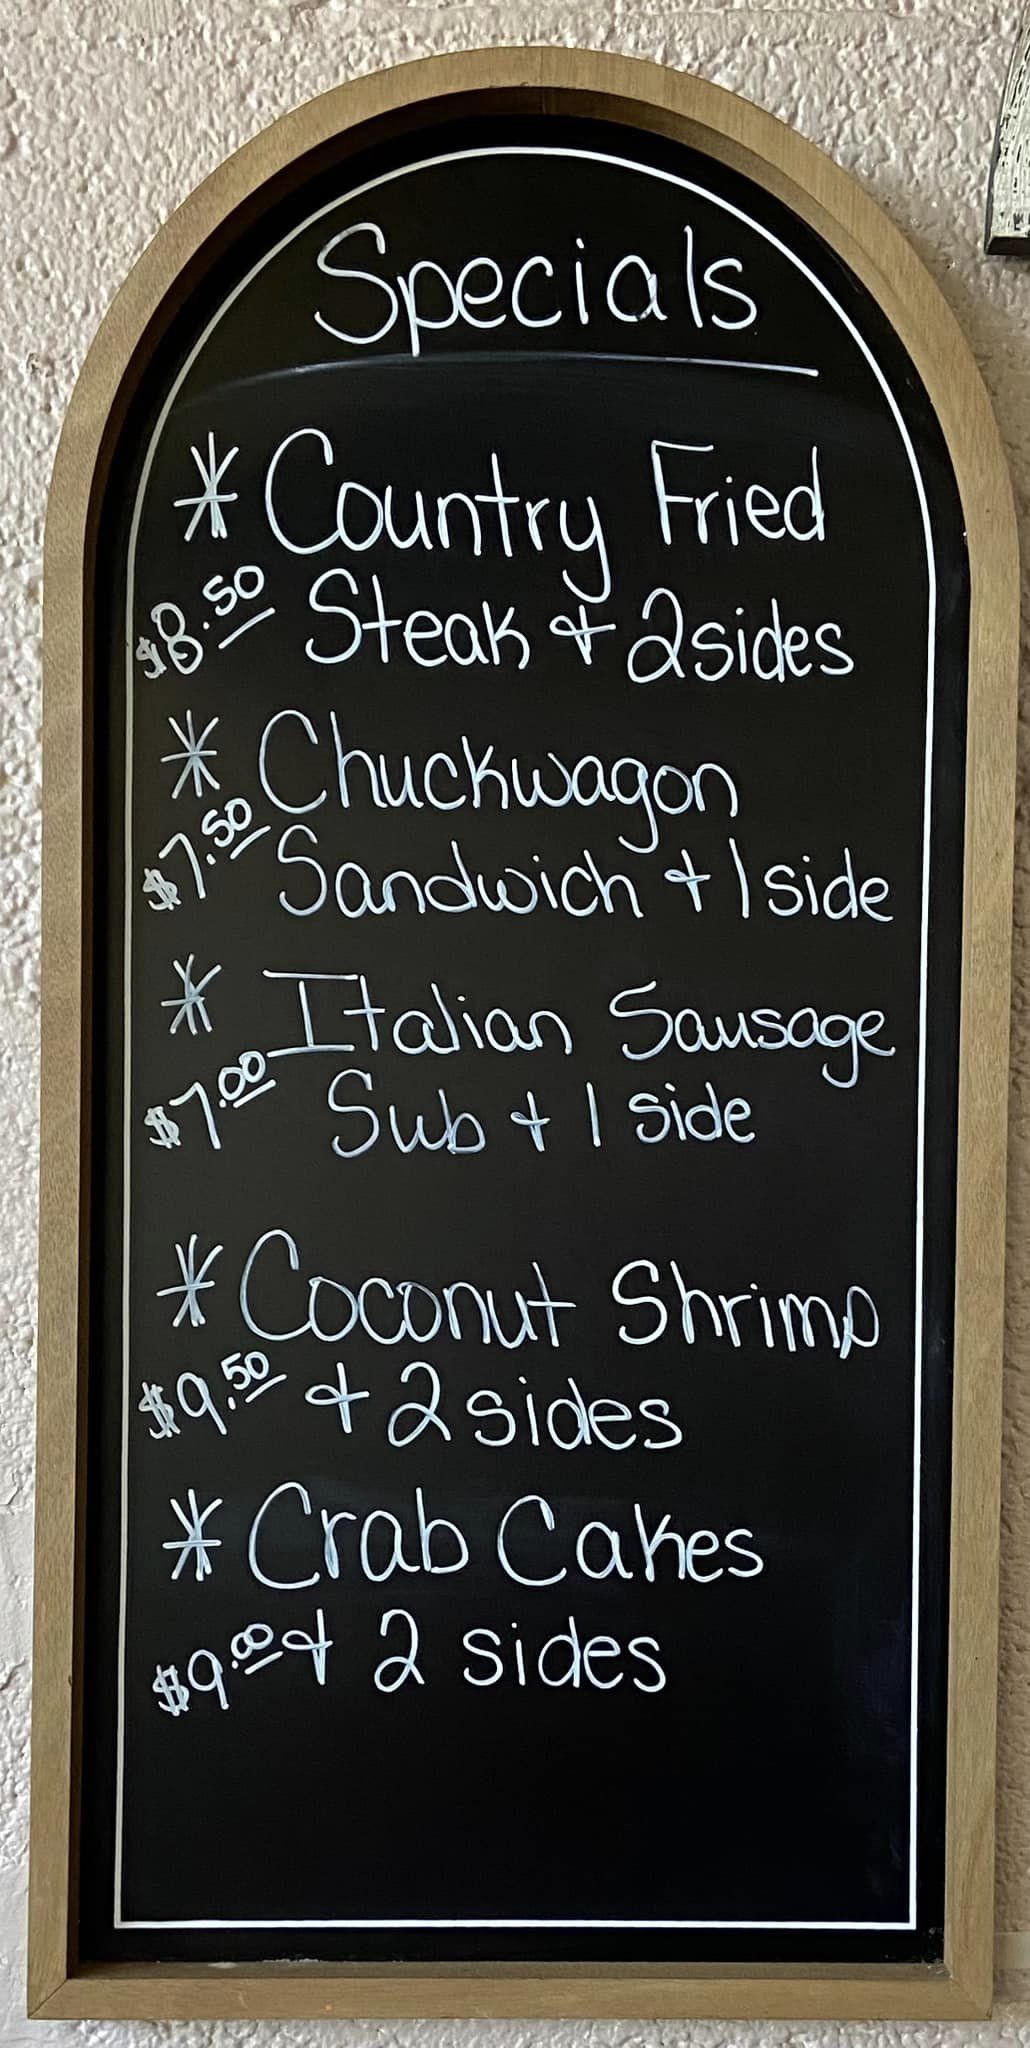 Specials
* Country Fried
$8.50 Steak & 2 sides
* Chuckwagon
$7.50 Sandwich & 1 side
* Italian Sausage
$7.00 Sub & 1 side
* Coconut Shrimp
$9.50 & 2 sides
* Crab Cakes
$9.00 & 2 sides